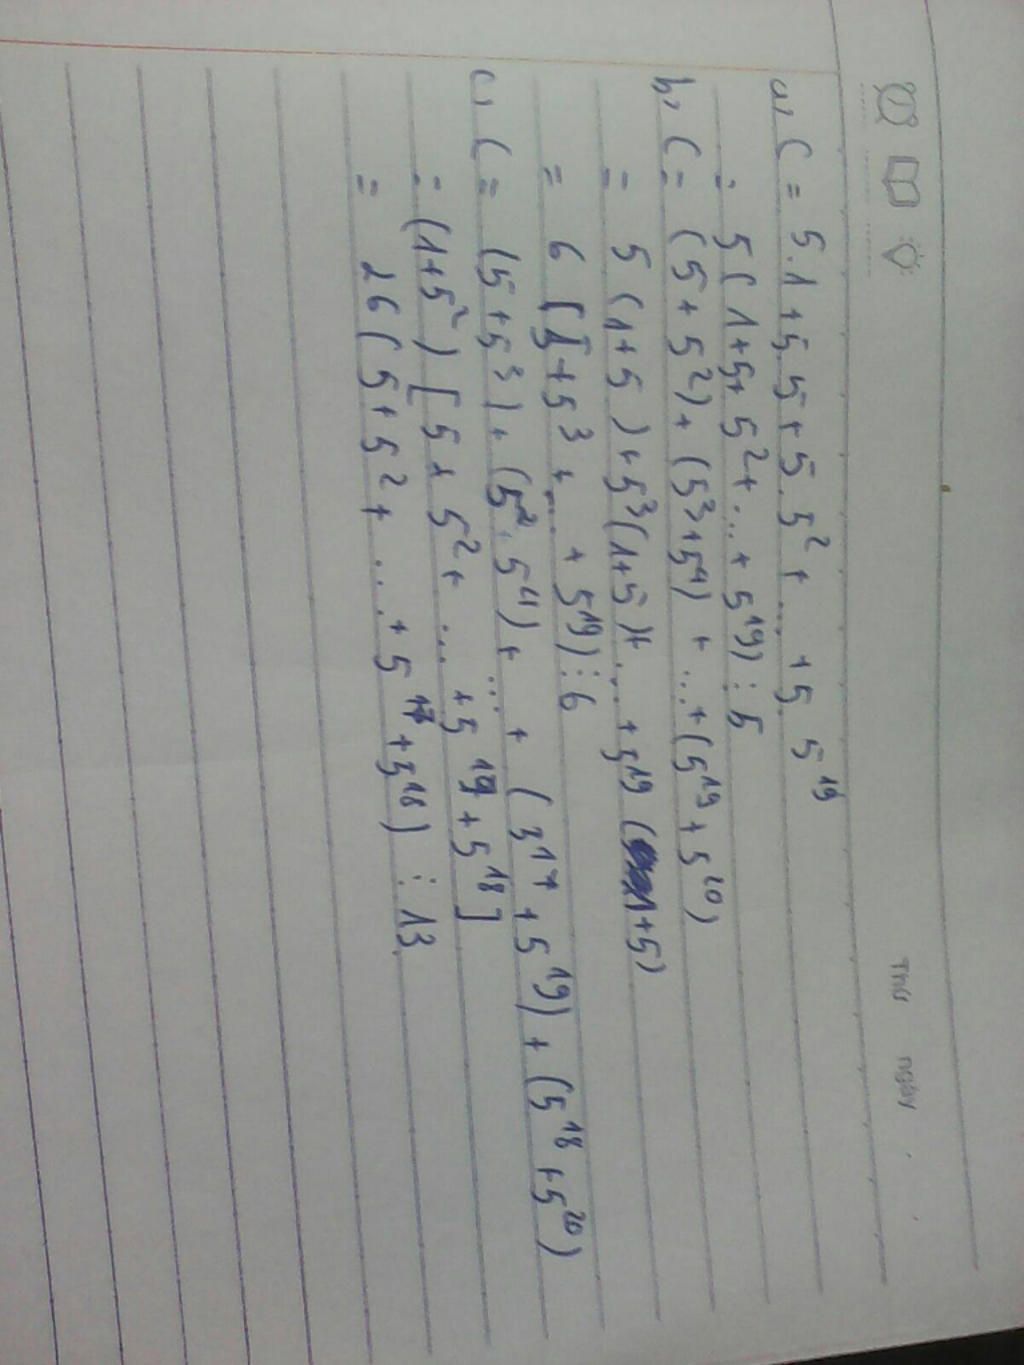 Thứ ngày
a, C = 5.1 + 5.5 + 5.5² + ... + 5 5¹⁹
= 5 ( 1 + 5 + 5² + ... + 5¹⁹) ⋮ 5
b, C = (5 + 5²) + (5³ + 5⁴) + ... + (5¹⁹ + 5²⁰)
= 5 (1 + 5 ) + 5³ (1 + 5 ) + ... + 5¹⁹ (1 + 5)
= 6 (5 + 5³ + ... + 5¹⁹) ⋮ 6
c, C = (5 + 5³) + (5² . 5⁴) + ... + (5¹⁷ + 5¹⁹) + (5¹⁸ + 5²⁰)
= (1 + 5²) [ 5 + 5² + ... + 5¹⁷ + 5¹⁸ ]
= 26 ( 5 + 5² + ... + 5¹⁷ + 5¹⁸) ⋮ 13